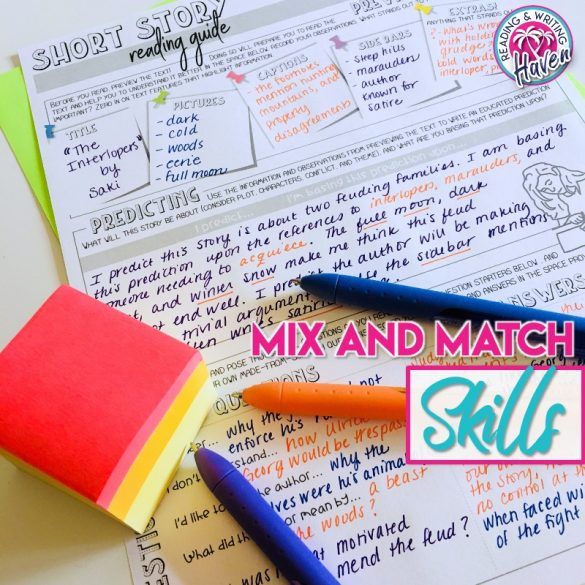 SHORT STORY
reading guide
PREV
DOING SO WILL PREPARE YOU TO READ THE
BEFORE YOU READ, PREVIEW THE TEXT.
TEXT AND HELP YOU TO UNDERSTAND IT BETTER.
IN THE SPACE BELOW, RECORD YOUR OBSERVATIONS. WHAT STANDS OUT TO
IMPORTANT? ZERO IN ON TEXT FEATURES THAT HIGHLIGHT
EXTRAS!
ANYTHING THAT STANDS
READING & WRITING
Haven
TITLE
"The
Interlopers"
by
Saki
PICTURES
- dark
- cold
- woods
- eerie
- full moon
CAPTIONS
the footnotes
mention hunting,
mountains, and
property
disagreements
SIDE BARS
- steep hills
- marauders
- author
known for
satire
- What's wrong
with holding
grudge?
bold words
interloper,
PREDICTING
USE THE INFORMATION AND OBSERVATIONS FROM PREVIEWING THE TEXT TO WRITE AN EDUCATED PREDICTION
WHAT WILL THIS STORY BE ABOUT (CONSIDER PLOT, CHARACTERS, CONFLICT, AND THEME), AND WHAT ARE YOU BASING THAT PREDICTION UPON?
I predict...
I'm basing this prediction upon...
I predict this story is about two feuding families. I am basing
this prediction upon the references to interlopers, marauders, and
someone needing to acquiece. The full moon, dark
and winter snow make me think this feud
not end well. I predict the author will be making
trivial argument
the sidebar mentions
writes satire
QUESTION STARTERS BELOW AND
AND ANSWERS IN THE SPACE PROV
ANSWERS
MIX AND MATCH
Skills
AND POSE
OWN MADE-FROM-
QUESTIONS
why the
not
enforce his
how Ulrich
Georg would be trespass
I don't
the author... why the
wolves were his anima
I'd like to
mean by... a beast
What did the
the woods?
what motivated
mend the feud?
the story,
no control at th
when faced wi
of the fight